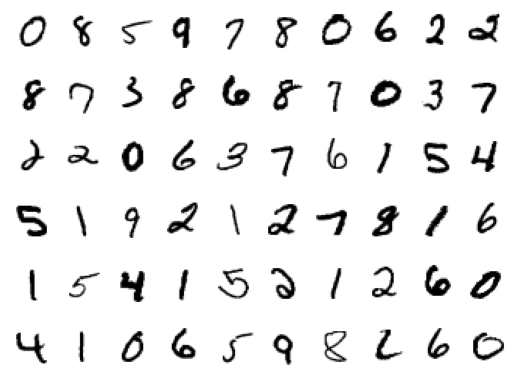 0 8 5 9 7 8 0 6 2 2
8 7 3 8 6 8 7 0 3 7
2 2 0 6 3 7 6 1 5 4
5 1 9 2 1 2 7 8 1 6
1 5 4 1 5 2 1 2 6 0
4 1 0 6 5 9 8 2 6 0